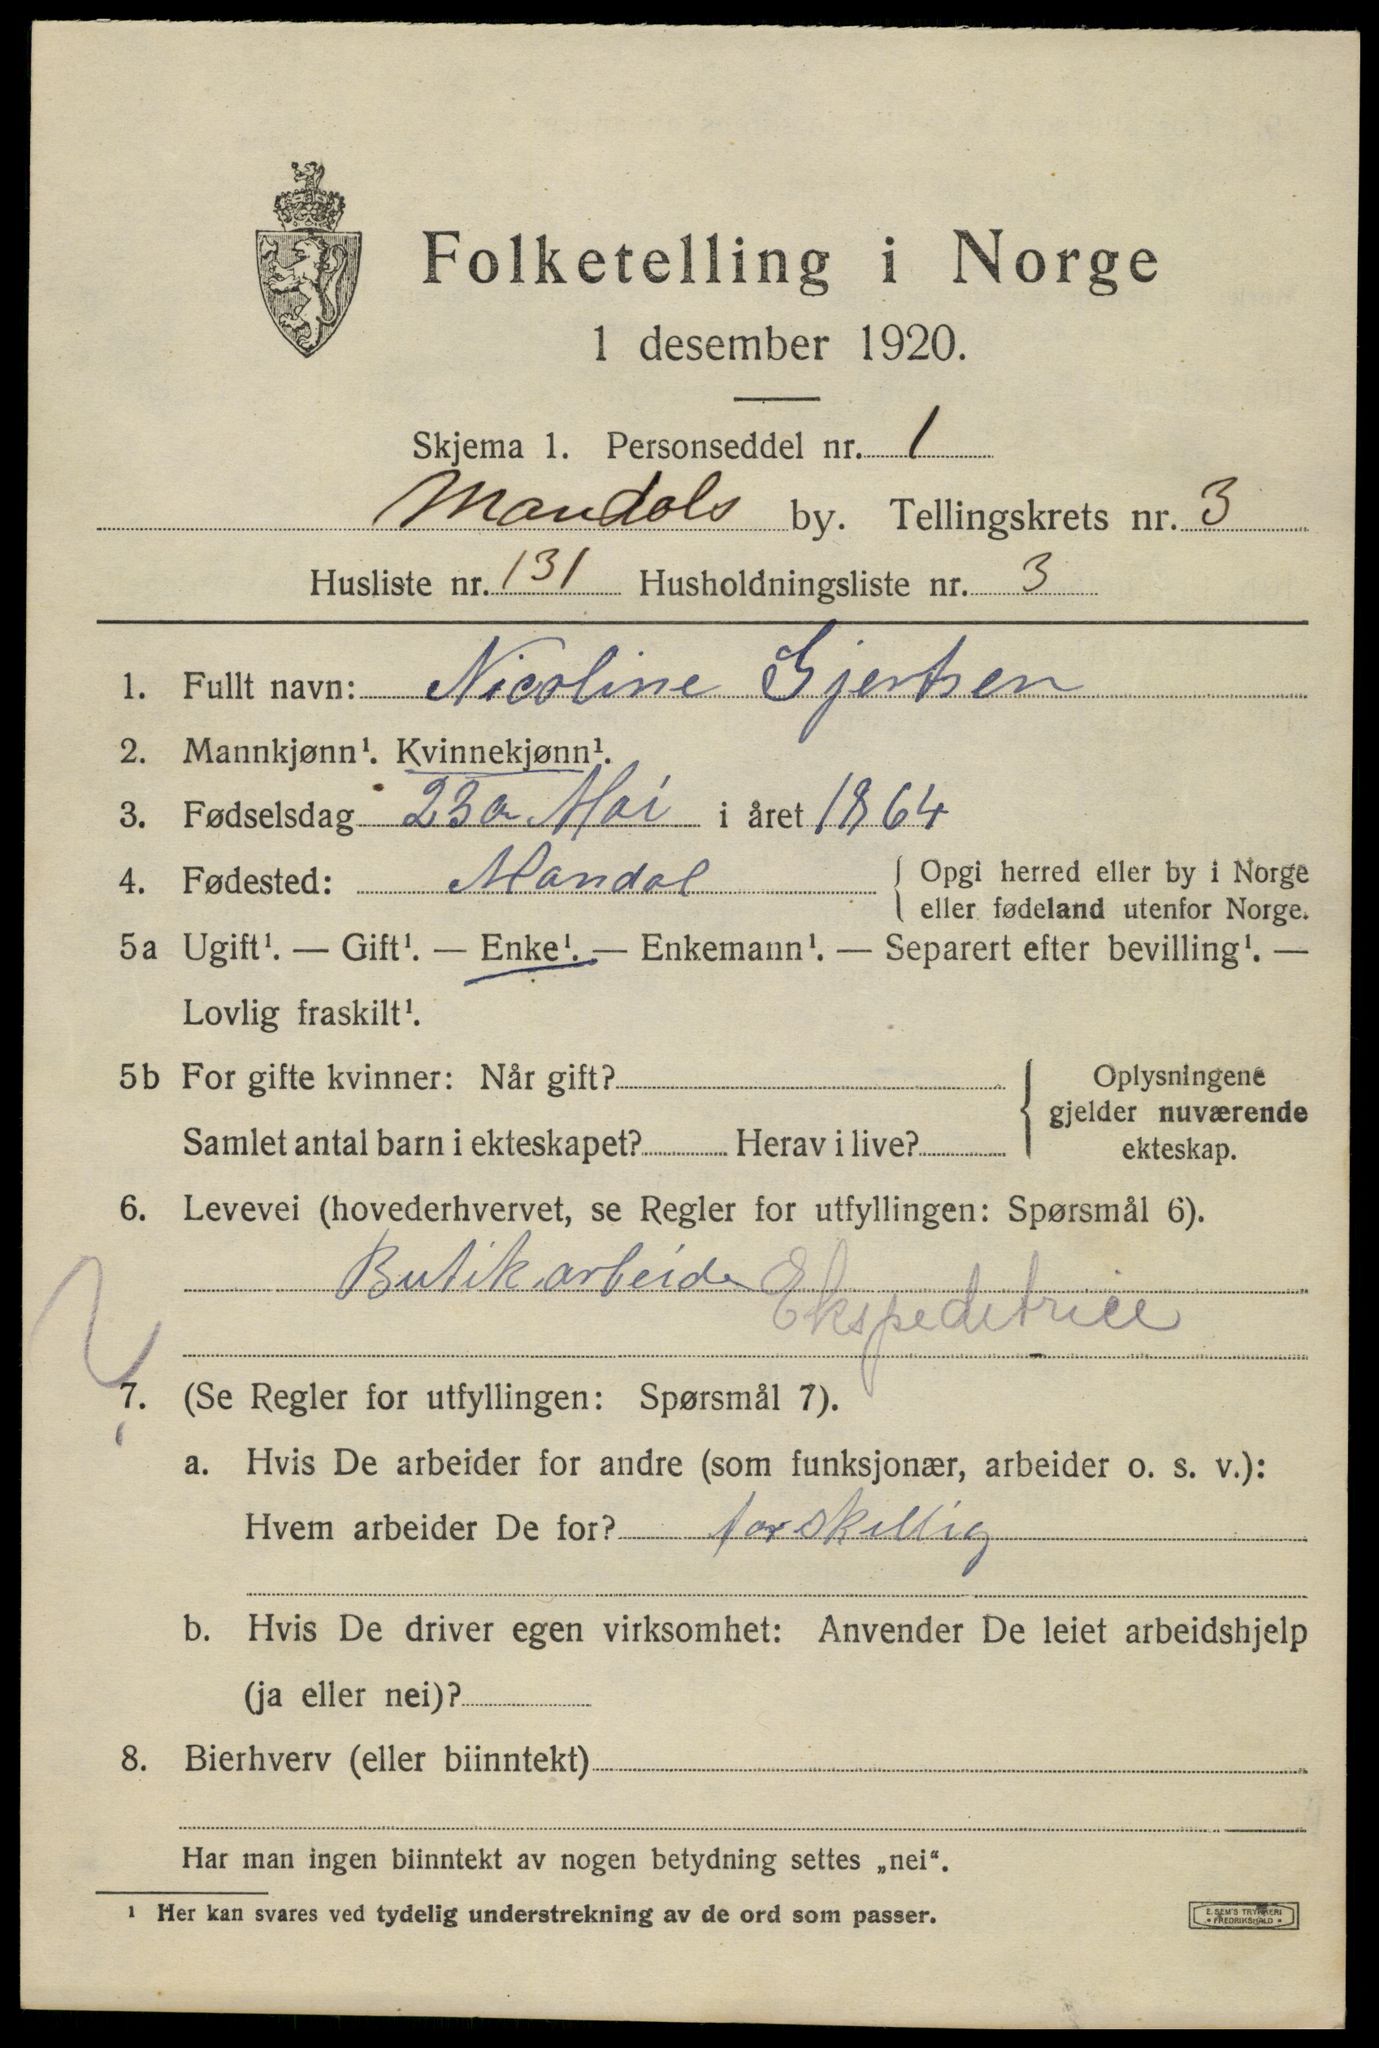 Folketelling i Norge
1 desember 1920.
Skjema 1. Personseddel nr. 1
Mandals by. Tellingskrets nr. 3
Husliste nr. 131 Husholdningsliste nr. 3
1. Fullt navn: Nicoline Gjertsen
2. Mannkjønn¹. Kvinnekjønn¹.
3. Fødselsdag 23 Mai i året 1864
4. Fødested: Mandal { Opgi herred eller by i Norge
eller fødeland utenfor Norge.
5a Ugift¹. — Gift¹. — Enke¹. — Enkemann¹. — Separert efter bevilling¹. —
Lovlig fraskilt¹.
5b For gifte kvinner: Når gift? { Oplysningene
gjelder nuværende
Samlet antal barn i ekteskapet? Herav i live? ekteskap.
6. Levevei (hovederhvervet, se Regler for utfyllingen: Spørsmål 6).
Butikarbeide Ekspeditrice
7. (Se Regler for utfyllingen: Spørsmål 7).
a. Hvis De arbeider for andre (som funksjonær, arbeider o. s. v.):
Hvem arbeider De for? forskellig
b. Hvis De driver egen virksomhet: Anvender De leiet arbeidshjelp
(ja eller nei)?
8. Bierhverv (eller biinntekt)
Har man ingen biinntekt av nogen betydning settes „nei“.
¹ Her kan svares ved tydelig understrekning av de ord som passer.
E. SEM'S TRYKKERI
• FREDRIKSHALD •